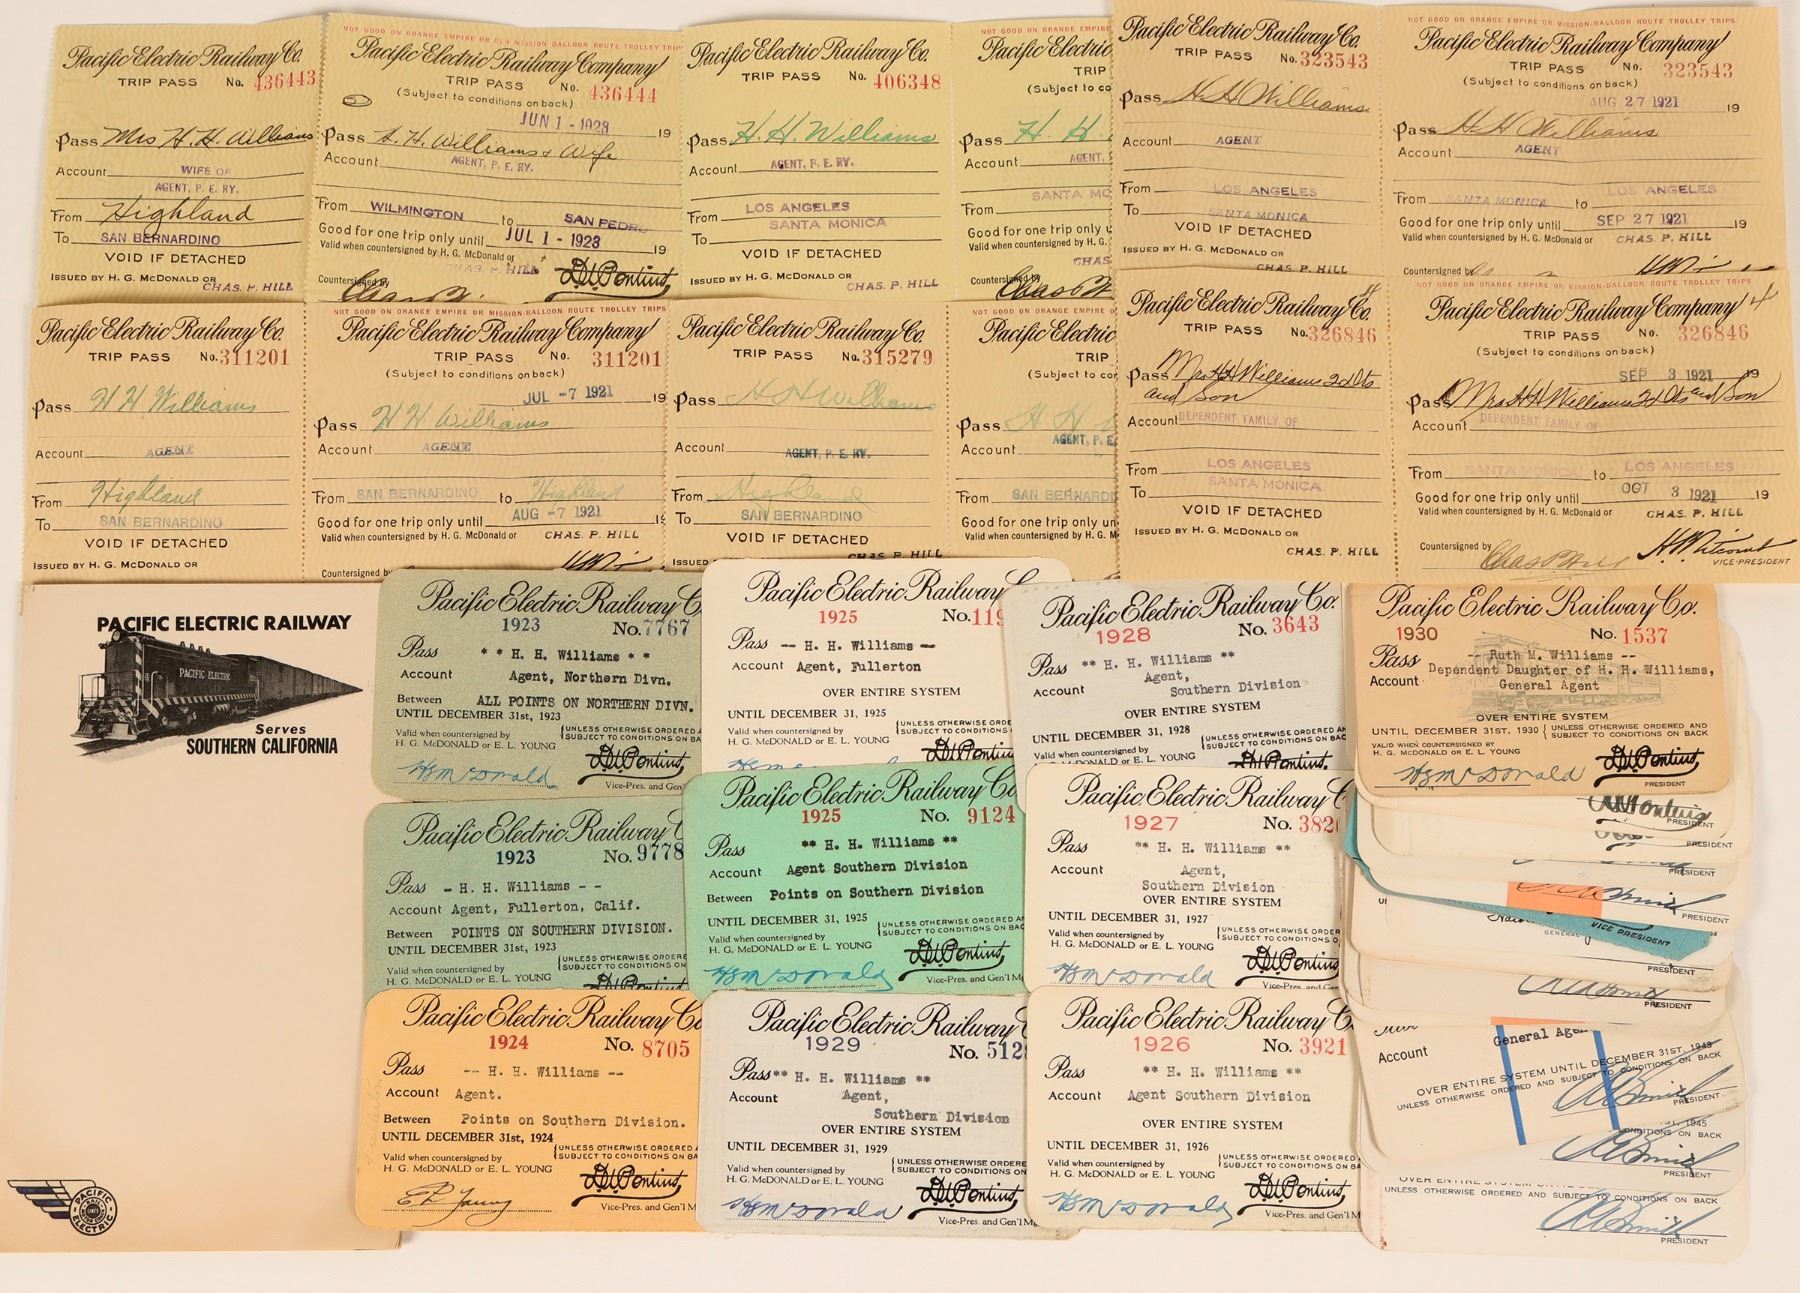 Pacific Electric Railway Co.
TRIP PASS No. 436443
Pass Mrs H. H. Williams
Account WIFE OF
AGENT, P. E. RY.
From Highland
To SAN BERNARDINO
VOID IF DETACHED
ISSUED BY H. G. McDONALD OR
CHAS. P. HILL
NOT GOOD ON ORANGE EMPIRE OR OLD MISSION-BALLOON ROUTE TROLLEY TRIPS
Pacific Electric Railway Company
TRIP PASS No. 436444
(Subject to conditions on back)
JUN 1 - 1923 19
Pass H. H. Williams & Wife
Account AGENT, P. E. RY.
From WILMINGTON to SAN PEDRO
Good for one trip only until JUL 1 - 1923 19
Valid when countersigned by H. G. McDonald or
CHAS. P. HILL
Countersigned by D. W. Pontius
Pacific Electric Railway Co.
TRIP PASS No. 406348
Pass H. H. Williams
Account AGENT, P. E. RY.
From LOS ANGELES
To SANTA MONICA
VOID IF DETACHED
ISSUED BY H. G. McDONALD OR
CHAS. P. HILL
NOT GOOD ON ORANGE EMPIRE O
Pacific Electric
TRIP
(Subject to co
Pass H. H.
Account AGENT,
SANTA MO
From
Good for one trip only u
Valid when countersigned by H. G.
CHAS
Countersigned by
Pacific Electric Railway Co.
TRIP PASS No. 323543
Pass H H Williams
Account AGENT
From LOS ANGELES
To SANTA MONICA
VOID IF DETACHED
ISSUED BY H. G. McDONALD OR
CHAS. P. HILL
NOT GOOD ON ORANGE EMPIRE OR MISSION-BALLOON ROUTE TROLLEY TRIPS
Pacific Electric Railway Company
TRIP PASS No. 323543
(Subject to conditions on back)
AUG 27 1921 19
Pass H H Williams
Account AGENT
From SANTA MONICA to LOS ANGELES
Good for one trip only until SEP 27 1921 19
Valid when countersigned by H. G. McDonald or CHAS. P. HILL
Countersigned by
Pacific Electric Railway Co.
TRIP PASS No. 311201
Pass H H Williams
Account AGENT
From Highland
To SAN BERNARDINO
VOID IF DETACHED
ISSUED BY H. G. McDONALD OR
NOT GOOD ON ORANGE EMPIRE OR MISSION-BALLOON ROUTE TROLLEY TRIPS
Pacific Electric Railway Company
TRIP PASS No. 311201
(Subject to conditions on back)
JUL -7 1921 19
Pass H H Williams
Account AGENT
From SAN BERNARDINO to Highland
Good for one trip only until AUG -7 1921 19
Valid when countersigned by H. G. McDonald or CHAS. P. HILL
Countersigned by
Pacific Electric Railway Co.
TRIP PASS No. 315279
Pass H H Williams
Account AGENT, P. E. RY.
From Highland
To SAN BERNARDINO
VOID IF DETACHED
CHAS. P. HILL
NOT GOOD ON ORANGE EMPIRE O
Pacific Electric
TRIP
(Subject to co
Pass H H
Account AGENT, P. E
From SAN BERNARDI
Good for one trip only un
Valid when countersigned by H. G. M
Countersigned by
Pacific Electric Railway Co.
TRIP PASS No. 326846
Pass Mrs H H Williams 2 dts
and Son
Account DEPENDENT FAMILY OF
From LOS ANGELES
To SANTA MONICA
VOID IF DETACHED
ISSUED BY H. G. McDONALD OR
CHAS. P. HILL
NOT GOOD ON ORANGE EMPIRE OR MISSION-BALLOON ROUTE TROLLEY TRIPS
Pacific Electric Railway Company
TRIP PASS No. 326846
(Subject to conditions on back)
SEP 3 1921 19
Pass Mrs H H Williams 2 dts and Son
Account DEPENDENT FAMILY OF
From SANTA MONICA to LOS ANGELES
Good for one trip only until OCT 3 1921 19
Valid when countersigned by H. G. McDonald or CHAS. P. HILL
Countersigned by Chas P Hill
VICE-PRESIDENT
PACIFIC ELECTRIC RAILWAY
PACIFIC ELECTRIC
Serves
SOUTHERN CALIFORNIA
PACIFIC
ELECTRIC
Pacific Electric Railway C
1923 No. 7767
Pass * * H. H. Williams * *
Account Agent, Northern Divn.
Between ALL POINTS ON NORTHERN DIVN.
UNTIL DECEMBER 31st, 1923
Valid when countersigned by
H. G. McDONALD or E. L. YOUNG
UNLESS OTHERWISE ORDERED A
SUBJECT TO CONDITIONS ON BA
HG McDonald D. W. Pontius
Vice-Pres. and Gen
Pacific Electric Railway C
1925 No. 119
Pass -- H. H. Williams --
Account Agent, Fullerton
OVER ENTIRE SYSTEM
UNTIL DECEMBER 31, 1925
Valid when countersigned by
H. G. McDONALD or E. L. YOUNG
UNLESS OTHERWISE ORDE
SUBJECT TO CONDITIONS
Pacific Electric Railway Co.
1928 No. 3643
Pass ** H. H. Williams **
Account Agent,
Southern Division
OVER ENTIRE SYSTEM
UNTIL DECEMBER 31, 1928
Valid when countersigned by
H. G. McDONALD or E. L. YOUNG
UNLESS OTHERWISE ORDER
SUBJECT TO CONDITIONS ON BA
Pacific Electric Railway Co.
1930 No. 1537
Pass -- Ruth M. Williams --
Account Dependent Daughter of H. H. Williams,
General Agent
OVER ENTIRE SYSTEM
UNTIL DECEMBER 31ST. 1930
UNLESS OTHERWISE ORDERED AND
SUBJECT TO CONDITIONS ON BACK
VALID WHEN COUNTERSIGNED BY
H. G. McDONALD OR E. L. YOUNG
HG McDonald D. W. Pontius
PRESIDENT
Pacific Electric Railway C
1923 No. 9778
Pass - H. H. Williams - -
Account Agent, Fullerton, Calif.
Between POINTS ON SOUTHERN DIVISION.
UNTIL DECEMBER 31st, 1923
Valid when countersigned by
H. G. McDONALD or E. L. YOUNG
UNLESS OTHERWISE ORDERE
SUBJECT TO CONDITIONS ON
Pacific Electric Railway Co
1925 No. 9124
Pass ** H. H. Williams **
Account Agent Southern Division
Between Points on Southern Division
UNTIL DECEMBER 31, 1925
Valid when countersigned by
H. G. McDONALD or E. L. YOUNG
UNLESS OTHERWISE ORDERED AN
SUBJECT TO CONDITIONS ON BAC
HG McDonald D. W. Pontius
Vice-Pres. and Gen'l M
Pacific Electric Railway C
1927 No. 382
Pass ** H. H. Williams **
Account Agent,
Southern Division
OVER ENTIRE SYSTEM
UNTIL DECEMBER 31, 1927
Valid when countersigned by
H. G. McDONALD or E. L. YOUNG
UNLESS OTHERWISE ORDERE
SUBJECT TO CONDITIONS ON
HG McDonald D. W. Pontius
Vice-Pres. and Gen
Pacific Electric Railway Co
1924 No. 8705
Pass -- H. H. Williams --
Account Agent.
Between Points on Southern Division.
UNTIL DECEMBER 31st, 1924
Valid when countersigned by
H. G. McDONALD or E. L. YOUNG
UNLESS OTHERWISE ORDERED A
SUBJECT TO CONDITIONS ON BA
E L Young D. W. Pontius
Vice-Pres. and Gen'l M
Pacific Electric Railway C
1929 No. 512
Pass ** H. H. Williams **
Account Agent,
Southern Division
OVER ENTIRE SYSTEM
UNTIL DECEMBER 31, 1929
Valid when countersigned by
H. G. McDONALD or E. L. YOUNG
UNLESS OTHERWISE ORDERE
SUBJECT TO CONDITIONS ON
HG McDonald D. W. Pontius
Vice-Pres. and Gen'l M
Pacific Electric Railway C
1926 No. 3921
Pass ** H. H. Williams **
Account Agent Southern Division
OVER ENTIRE SYSTEM
UNTIL DECEMBER 31, 1926
Valid when countersigned by
H. G. McDONALD or E. L. YOUNG
UNLESS OTHERWISE ORDERED
SUBJECT TO CONDITIONS ON BA
HG McDonald D. W. Pontius
Vice-Pres. and Gen'l M
PRESIDENT
PRESIDENT
PRESIDENT
PRESIDENT
VICE PRESIDENT
GENERAL
PRESIDENT
PRESIDENT
Account General Agen
OVER ENTIRE SYSTEM UNTIL DECEMBER 31ST. 1943
UNLESS OTHERWISE ORDERED AND SUBJECT TO CONDITIONS ON BACK
PRESIDENT
ST, 1945
CONDITIONS ON BACK
PRESIDENT
UNLESS OTHERWISE ORDERED AND SUBJECT TO CONDITIONS ON BACK
PRESIDENT